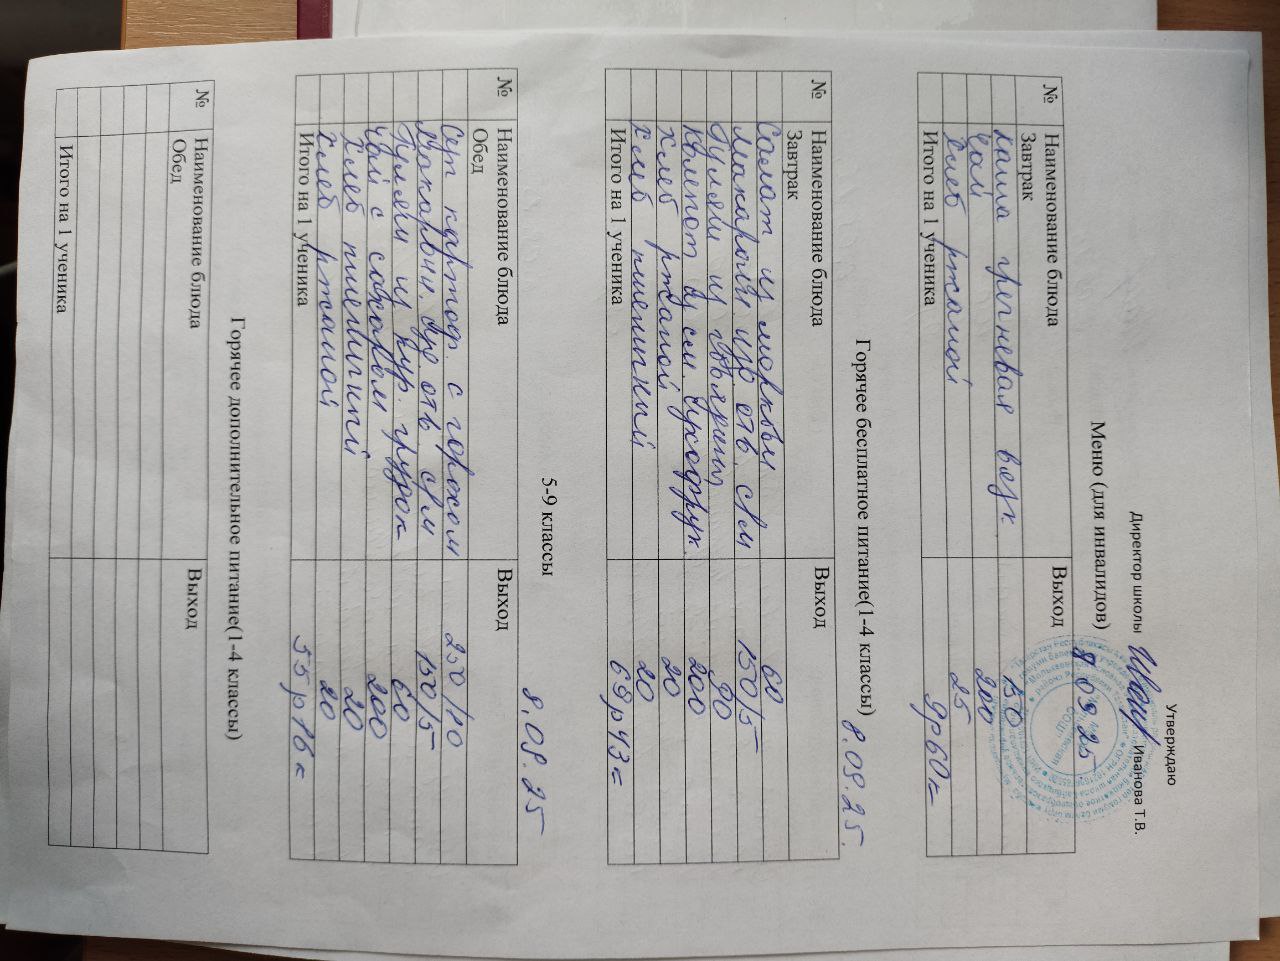 Утверждаю
Директор школы Иванова Т.В.
8 09.25.
Меню (для инвалидов)
№ Наименование блюда Выход
Завтрак
каша гречневая вязк. 150
чай 200
хлеб ржаной 25
Итого на 1 ученика 9р60к
Горячее бесплатное питание(1-4 классы) 8.09.25.
№ Наименование блюда Выход
Завтрак
Салат из моркови 60
Макароны изд. отв. с/м 150/5
Гуляш из говядины 90
Компот из см. сухофрук. 200
Хлеб ржаной 20
Хлеб пшеничный 20
Итого на 1 ученика 69р43к
5-9 классы 8.09.25
№ Наименование блюда Выход
Обед
Суп картоф. с горохом 250/10
Макарон. изд. отв. с/м 150/5
Гуляш из кур. грудок 60
Чай с сахаром 200
Хлеб пшеничный 20
Хлеб ржаной 20
Итого на 1 ученика 55р16к
Горячее дополнительное питание(1-4 классы)
№ Наименование блюда Выход
Обед
Итого на 1 ученика